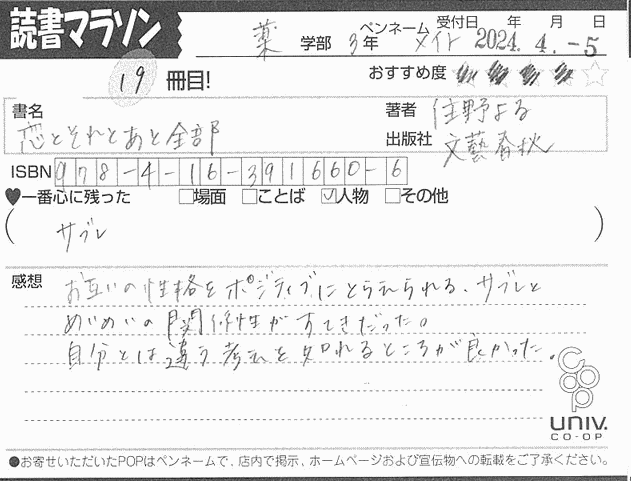 読書マラソン
薬 学部 3年 ペンネーム メイト 受付日 年 月 日 2024. 4. -5
19 冊目! おすすめ度
書名 恋とそれとあと全部
著者 住野よる
出版社 文藝春秋
ISBN 978-4-16-391660-6
♥一番心に残った □場面 □ことば ☑人物 □その他
( サブレ )
感想 お互いの性格をポジティブにとらえられる、サブレと
めいめいの関係性がすてきだった。
自分とは違う考えを知れるところが良かった。
coop
UNIV.
CO-OP
●お寄せいただいたPOPはペンネームで、店内で掲示、ホームページおよび宣伝物への転載をご了承ください。